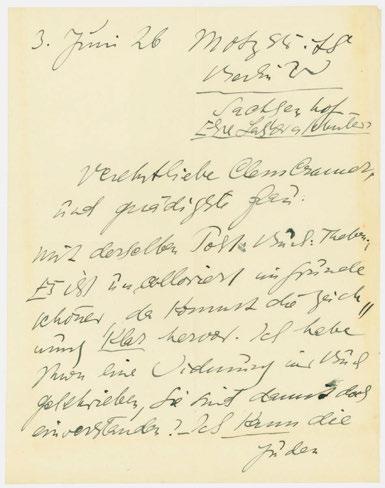 3. Juni 26 Motzstr. 78
Berlin W
Sachsenhof
Else Lasker-Schüler
Verehrtliebe Clenscramer,
und gnädigste Frau:
mit derselben Post: Buch: Theben.
Es ist uncolloriert im Grunde
schöner, da kommt die Zeich"
nung klar hervor. Ich habe
Ihnen eine Widmung ins Buch
geschrieben, Sie sind damit doch
einverstanden? Ich kann die
Juden